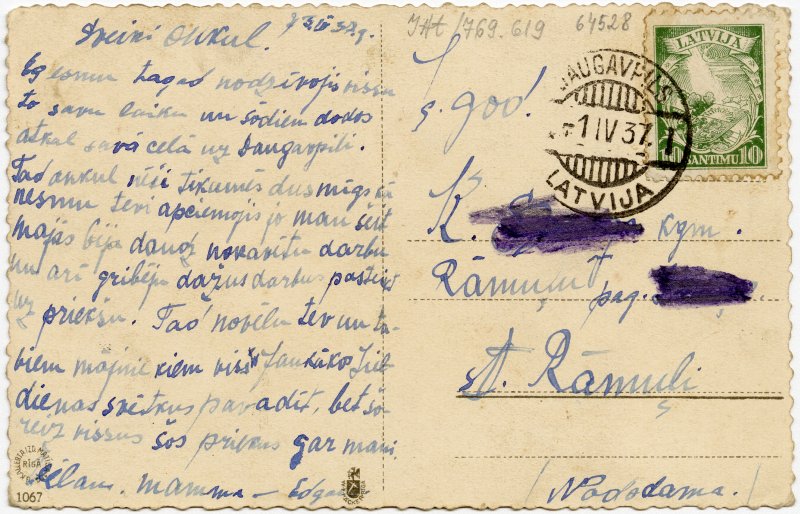 Sveiki Onkul.
Es esmu tagad nodzīvojis vissu
to savu laiku un šodien dodos
atkal savā ceļā uz Daugavpili.
Tad onkul nesmu tevi apciemojis jo man šeit
majās bija daudz nokavētu darbu
un arī gribēju dažus darbus pasteigt
uz priekšu. Tad novēlu tev un ta-
viem mājniekiem viss Jaukākos Liel-
dienas svētkus pavadīt, bet šo-
reiz vissus šos priekus gar mani
mamma – Edgars
1067
RĪGĀ
JAt/769.619 64528
LATVIJA
SANTIMU 10
DAUGAVPILS
-1 IV 37
LATVIJA
g. god.
K. kgm.
Rāmuņu pag.
st. Rāmuļi
/Nododama./